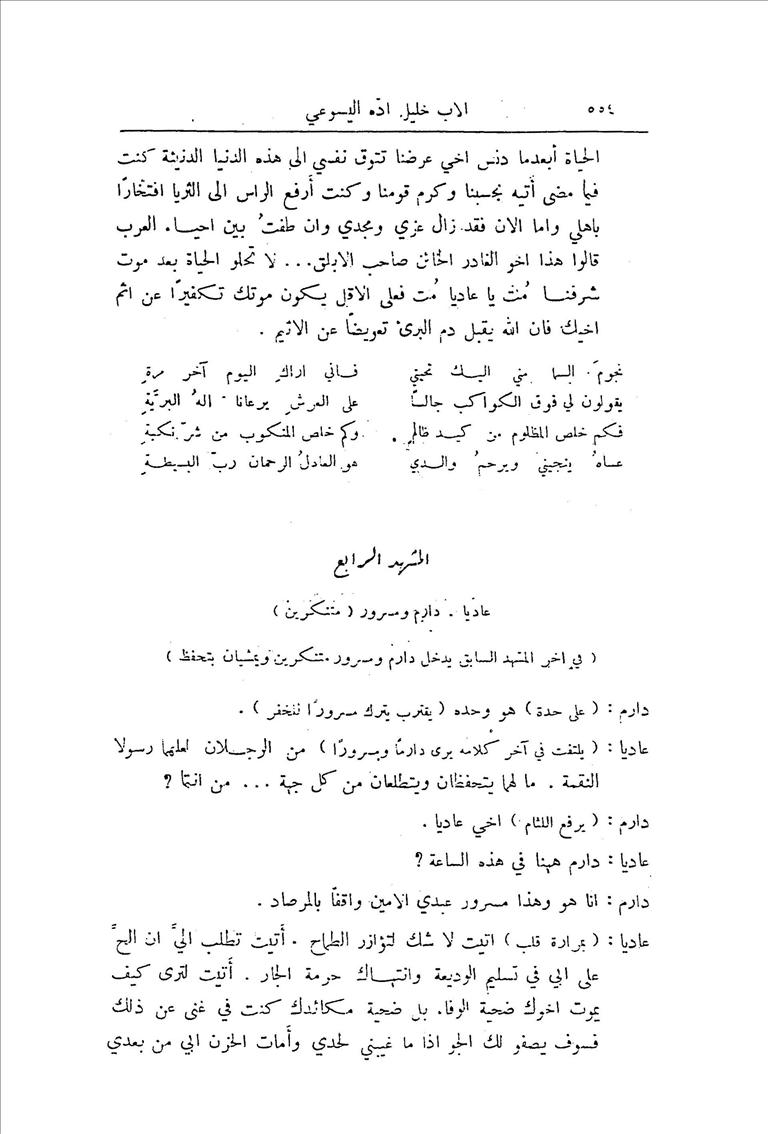 ٥٥٤ الاب خليل ادّه اليسوعي
الحياة أبعدما دنس اخي عرضنا تتوق نفسي الى هذه الدنيا الدنيئة كنت
فيما مضى أتيه بحسبنا وكرم قومنا وكنت أرفع الراس الى الثريا افتخارًا
باهلي واما الان فقد زال عزي ومجدي وان طفتُ بين احياء العرب
قالوا هذا اخو الغادر الخائن صاحب الابلق... لا تحلو الحياة بعد موت
شرفنا مُت يا عاديا مُت فعلى الاقل يكون موتك تكفيرًا عن اثم
اخيك فان الله يقبل دم البرئ تعويضًا عن الاثيم .
نجومَ السما مني اليك تحيتي فاني اراكِ اليوم آخر مرةٍ
يقولون لي فوق الكواكب جالسًا على العرشِ يرعانا الهُ البريَّةِ
فكم خلص المظلوم من كيد ظالمٍ وكم خلص المنكوب من شرّ نكبةٍ
عساهُ ينجيني ويرحمُ والدي هو العادلُ الرحمان ربّ البسيطةِ
المشهد الرابع
عاديا . دارم ومسرور ( متنكرين )
( في اخر المشهد السابق يدخل دارم ومسرور متنكرين ويمشيان بتحفظ )
دارم : ( على حدة ) هو وحده ( يقترب يترك مسرورًا للخفر ) .
عاديا : ( يلتفت في آخر كلامه يرى دارمًا ومسرورًا ) من الرجلان لعلهما رسولا
النقمة . ما لهما يتحفظان ويتطلعان من كل جهة ... من انتما ؟
دارم : ( يرفع اللثام ) اخي عاديا .
عاديا : دارم ههنا في هذه الساعة ؟
دارم : انا هو وهذا مسرور عبدي الامين واقفًا بالمرصاد .
عاديا : ( بمرارة قلب ) اتيت لا شك لتؤازر الطماح . أتيت تطلب اليَّ ان الحَّ
على ابي في تسليم الوديعة وانتهاك حرمة الجار . أتيت لترى كيف
يموت اخوك ضحية الوفاء بل ضحية مكائدك كنت في غنى عن ذلك
فسوف يصفو لك الجو اذا ما غيبني لحدي وأمات الحزن ابي من بعدي